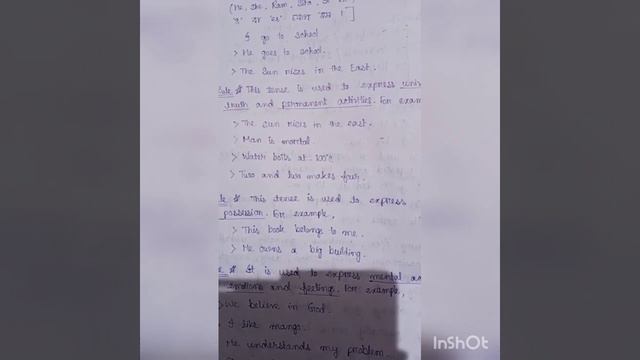 (He, She, Ram, Sita,
I go to school
> He goes to school.
> The Sun rises in the East.
This tense is used to express
truth and permanent activities. For
> The sun rises in the east.
> Man is mortal.
> Water boils at 100°C
> Two and two makes four.
This tense is used to express
possession. For example,
> This book belongs to me.
> He owns a big building.
It is used to express mental
emotions and feelings. For example,
> We believe in God.
I like mango.
He understands my problem.
InShOt